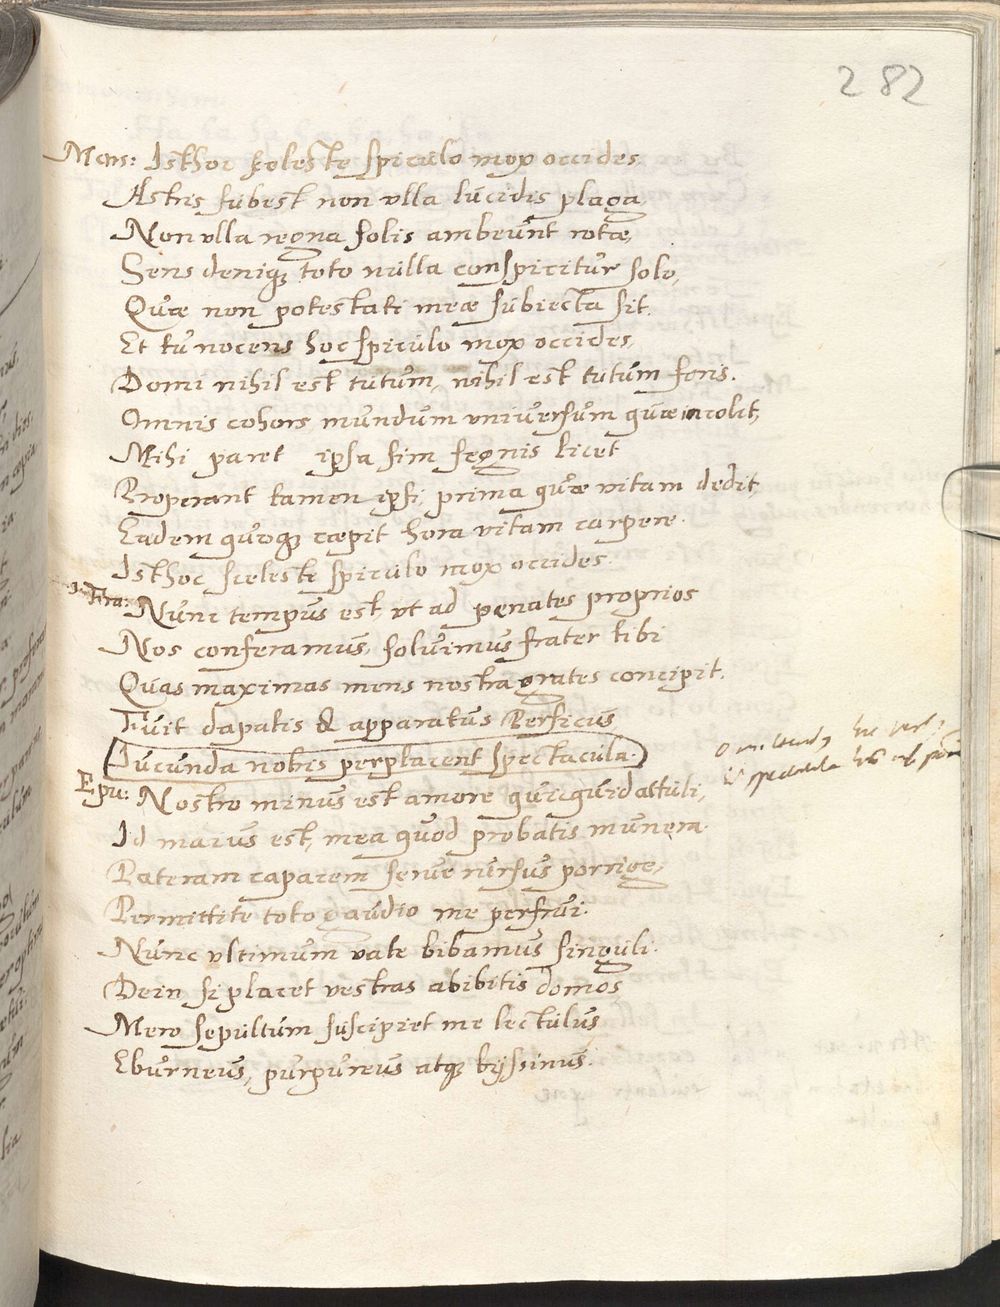 282
Mors: Isthoc sceleste spiculo mox occides.
Astris subest non ulla lucidis plaga,
Non ulla regna solis ambeunt rotæ,
Gens deniq; toto nulla conspicitur solo,
Quæ non potestati meæ subiecta sit.
Et tu nocens hoc spiculo mox occides,
Domi nihil est tutum, nihil est tutum foris.
Omnis cohors mundum universum quæ incolit,
Mihi paret ipsa sim segnis licet
Properant tamen ipsi, prima quæ vitam dedit,
Eadem quoq; cæpit hora vitam carpere.
Isthoc sceleste spiculo mox occides.
1. Fra: Nunc tempus est, ut ad penates proprios
Nos conferamus, solvimus frater tibi
Quas maximas mens nostra grates concipit.
Fuit dapalis & apparatus Persicus
Iucunda nobis perplacent spectacula.
Epu: Nostro minus est amore quicquid attuli,
Id maius est, mea quod probatis munera.
Pateram capacem serve rursus porrige,
Permittite toto gaudio me perfrui.
Nunc ultimum vale bibamus singuli.
Dein si placet vestras abibitis domos
Mero sepultum suscipiet me lectulus
Eburneus, purpureus atq; byssinus.